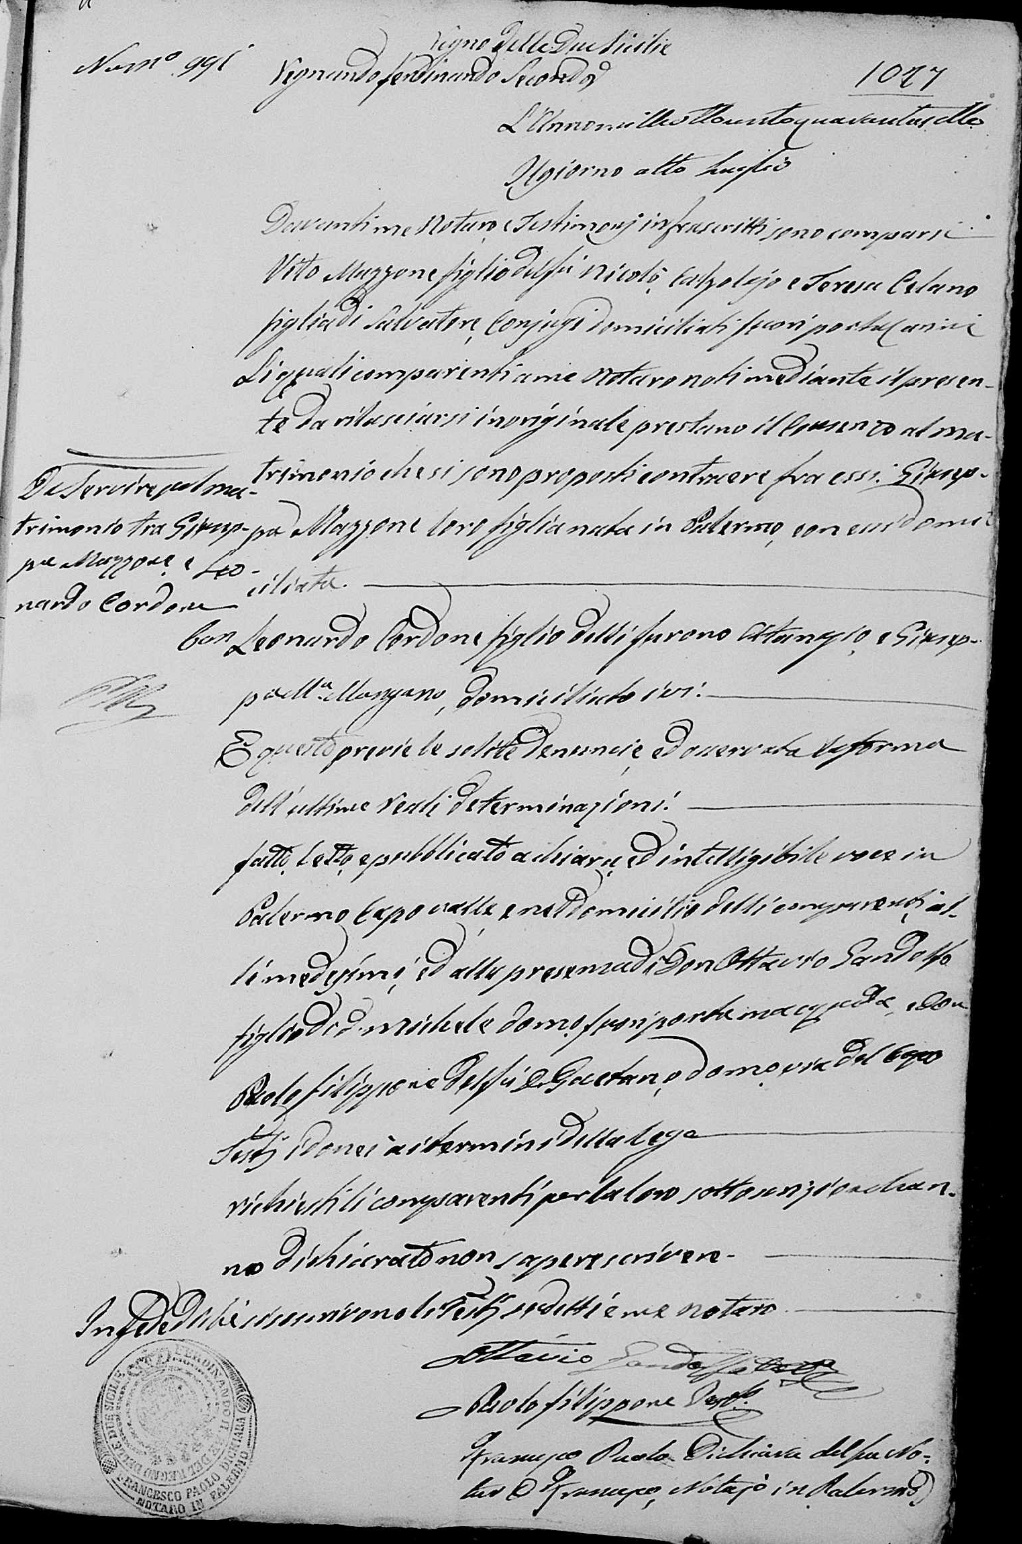 Num.º 991
1027
Regno delle Due Sicilie
Regnando Ferdinando Secondo
L'Anno mille ottocento quarantasette
Il giorno otto Luglio
Davanti me Notaro e Testimonj infrascritti sono comparsi
Vito Mazzone figlio del fu Nicolò, Calzolajo e Teresa Celano
figlia di Salvatore, Conjugi domiciliati fuori porta Carini
Li quali comparenti a me Notaro noti mediante il presen-
te da rilasciarsi in originale prestano il Consenso al ma-
trimonio che si sono proposti contraere fra essi. Giusep-
pa Mazzone loro figlia nata in Palermo, con essi domi-
ciliata.
Da Servire pel ma-
trimonio tra Giusep-
pa Mazzone, e Leo-
nardo Cordone
Con Leonardo Cordone figlio delli furono Atanasio, e Giusep-
pa Mª Mangano, domiciliato ivi.
E questo previe le solite denuncie, ed osservata la forma
dell'ultime reali determinazioni.
fatto, letto, e pubblicato a chiara, ed intelligibile voce in
Palermo Capo valle, e nel domicilio delli comparenti, al-
li medesimi, ed alla presenza di Don Ottavio Gandolfo
figlio di D. Michele dom.º fuori porta Macqueda, e Don
Paolo Filippone del fu D. Gaetano, dom.º via del Capo
Testj idonei ai termini della legge
richiesti li comparenti per la loro sottoscrizione han-
no dichiarato non sapere scrivere.
In fede del che si sottoscrivono li Testj sudetti e me notaro
Ottavio Gandolfo
Paolo Filippone Test.º
Francesco Paolo Dichiara del fu No-
tar D. Francesco, Notajo in Palermo
FERDINANDO II RE DEL REGNO DELLE DUE SICILIE
FRANCESCO PAOLO DICHIARA
NOTARO IN PALERMO